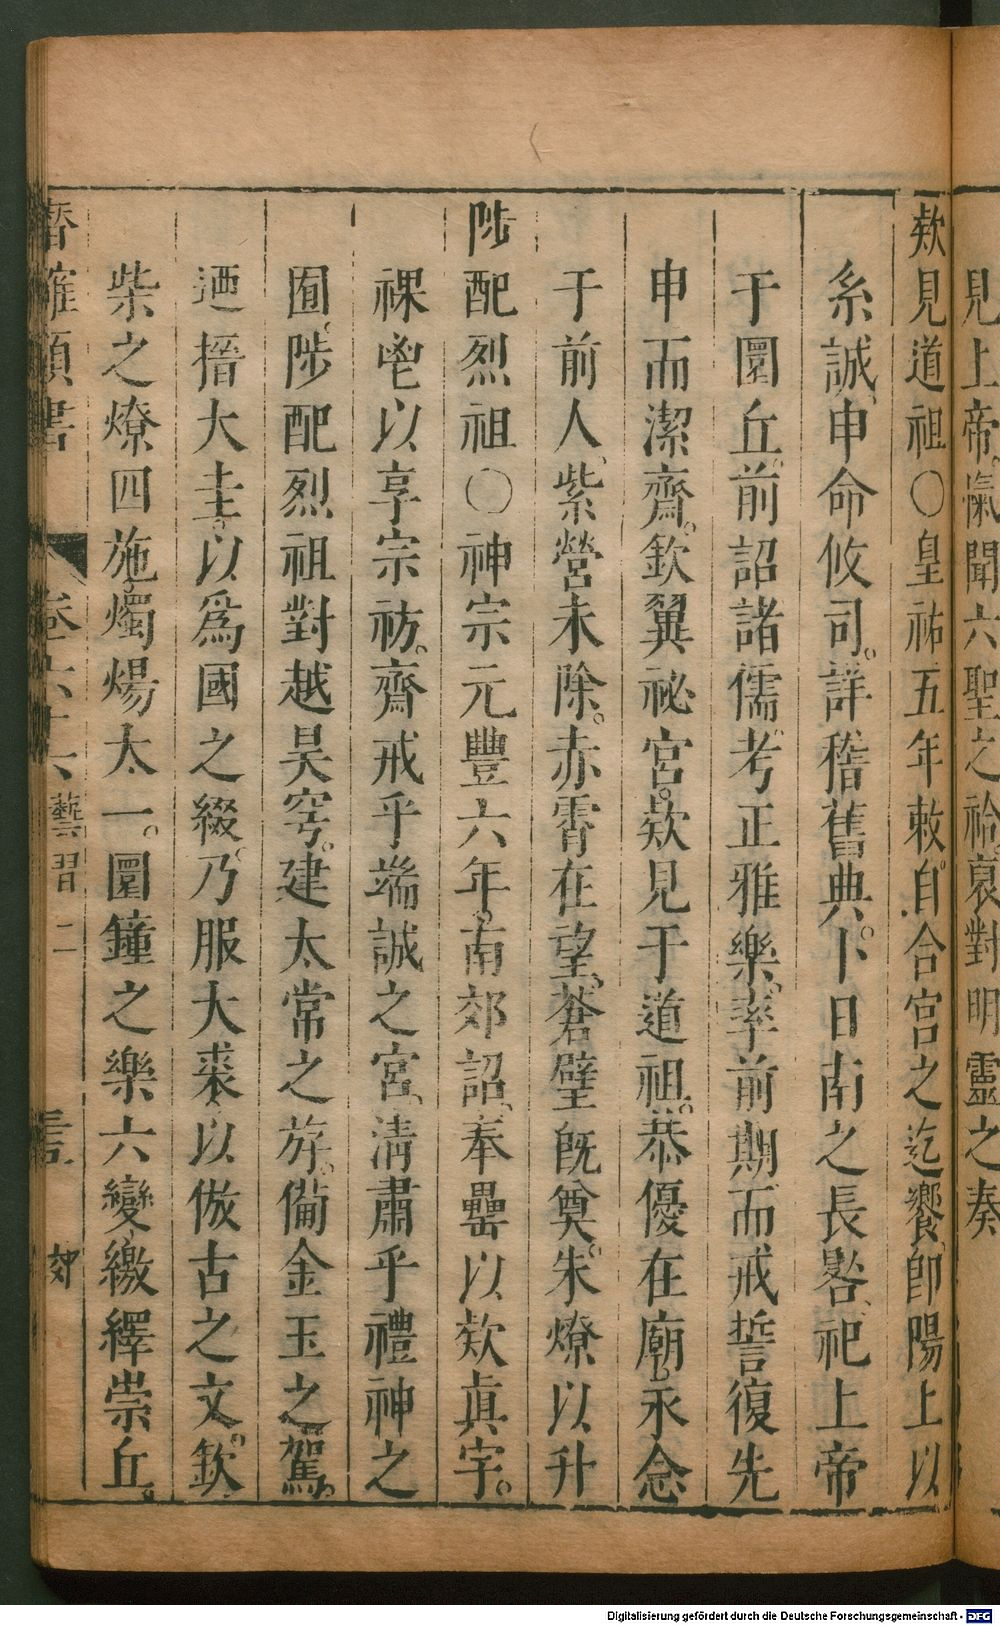 見上帝愾聞六聖之祫裒對明靈之奏
欵見道祖○皇祐五年敕自合宮之迄饗卽陽上以
糸誠申命攸司。詳稽舊典。卜日南之長晷、祀上帝
于圜丘。前詔諸儒。考正雅樂。率前期而戒誓復先
申而潔齋。欽翼祕宮。欵見于道祖。恭優在廟。永念
于前人。紫營未除。赤霄在望。蒼璧旣奠。朱燎以升
陟配烈祖○神宗元豐六年。南郊詔、奉罍以欵真宇。
祼鬯以享宗祊。齋戒乎端誠之宮、清肅乎禮神之
囿。陟配烈祖對越昊穹。建太常之旂。備金玉之駕。
迺搢大圭。以爲國之綴。乃服大裘、以倣古之文。欽
柴之燎四施燭煬太一。圜鐘之樂六變繳繹崇丘。
卷六十六 藝習二 郊
Digitalisierung gefördert durch die Deutsche Forschungsgemeinschaft - DFG